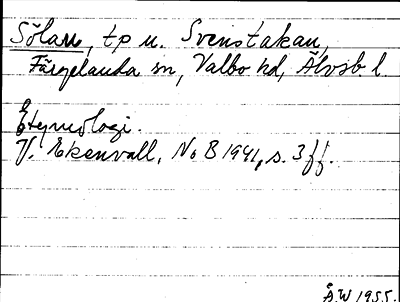 Sölan, tp u. Svenstakan,
Färgelanda sn, Valbo hd, Älvsb l
Etymologi.
V. Ekenvall, NoB 1941, s. 3 ff.
Å.W 1955.